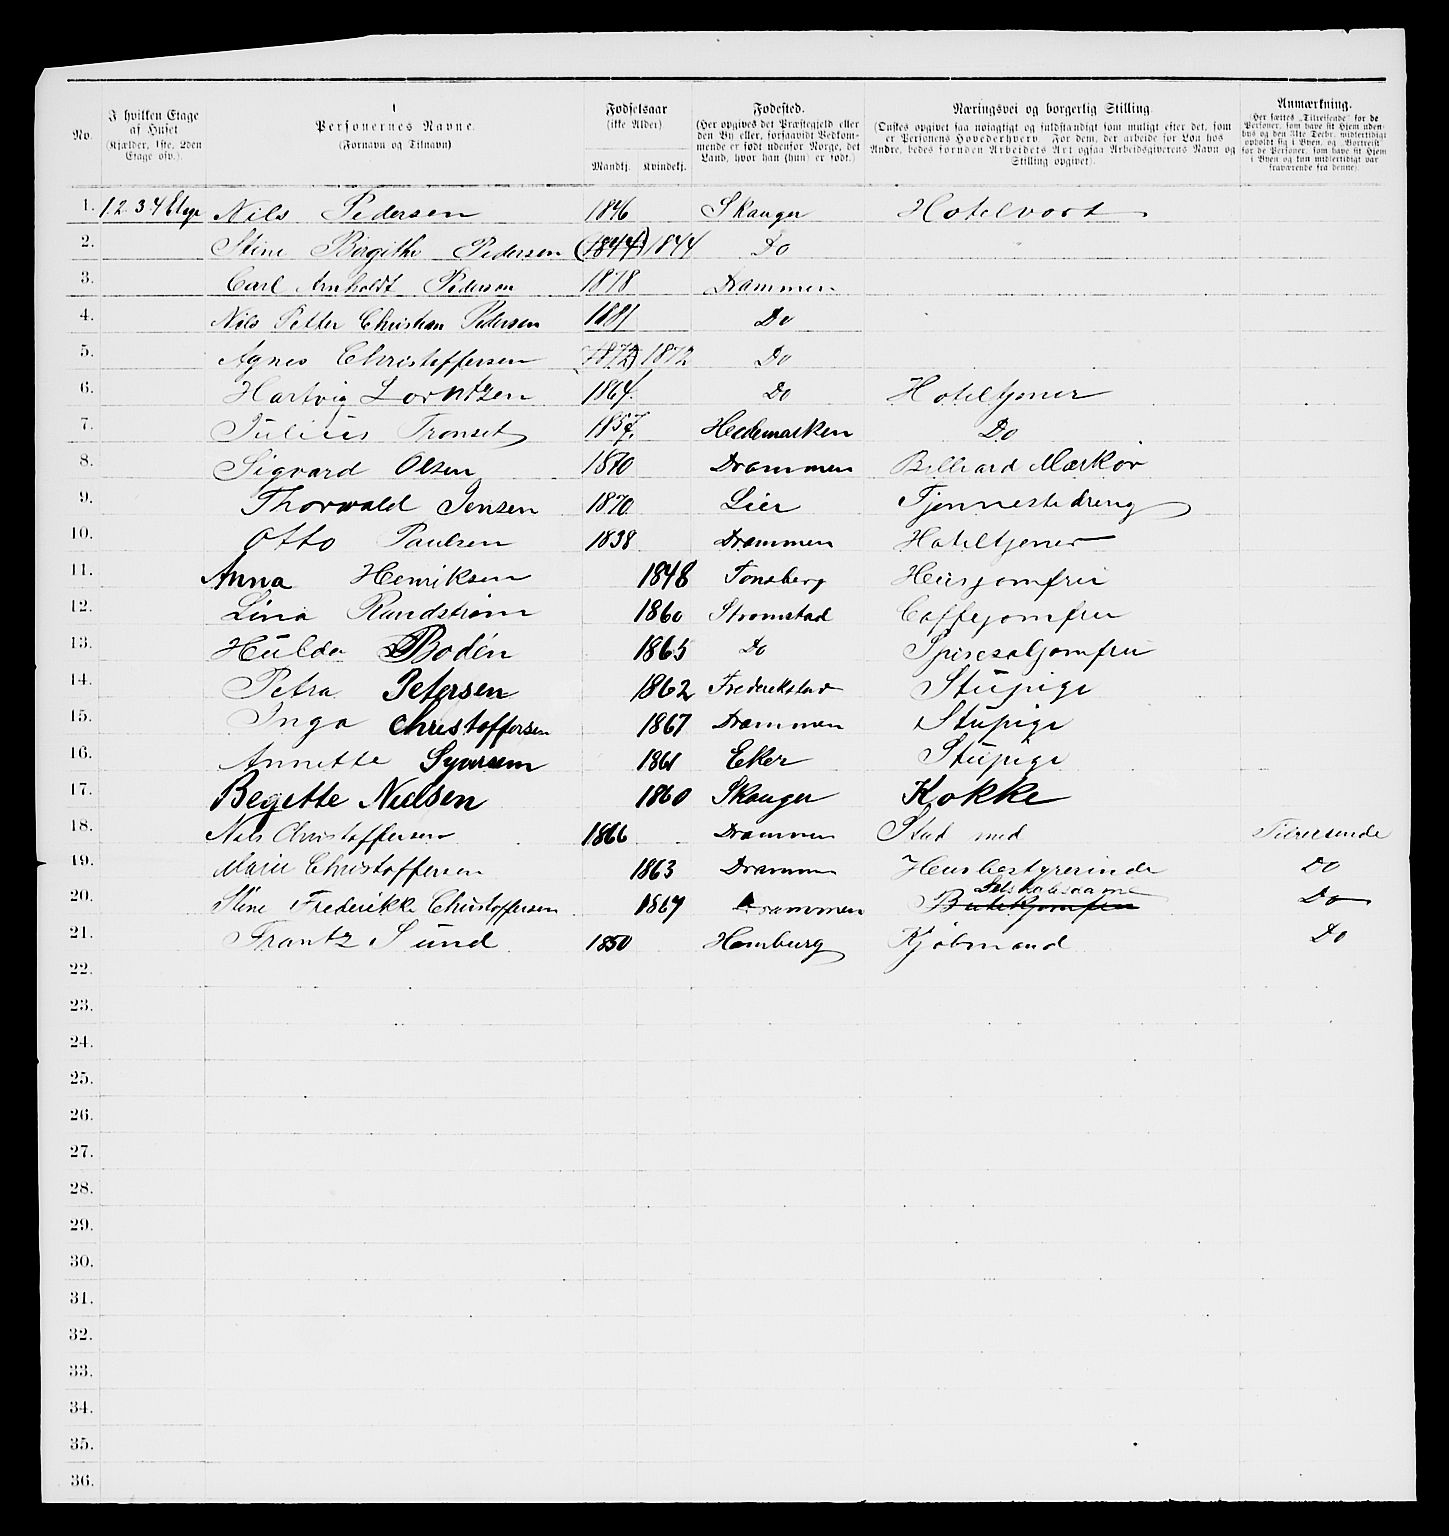 No.
I hvilken Etage af Huset (Kjælder, 1ste, 2den Etage osv.).
Personernes Navne. (Fornavn og Tilnavn)
Fødselsaar (ikke Alder) Mandkj. Kvindekj.
Fødested. (Her opgives det Præstegjeld eller den By eller, forsaavidt Vedkommende er født udenfor Norge, det Land, hvor han (hun) er født.)
Næringsvei og borgerlig Stilling. (Ønskes opgivet saa nøiagtigt og fuldstændigt som muligt efter det, som er Personens Hovederhverv. For dem, der arbeide for Løn hos Andre, bedes foruden Arbeidets Art ogsaa Arbeidsgiverens Navn og Stilling opgivet).
Anmærkning. (Her sættes „Tilreisende" for de Personer, som have sit Hjem udenbys og den 31te Decbr. midlertidigt opholdt sig i Byen, og „Bortreist" for de Personer, som have sit Hjem i Byen og kun midlertidigt var fraværende fra denne).
1. 1 2 3 4 Etage Nils Pedersen 1846 Skauger Hotelvært
2. Stine Birgithe Pedersen (1844) 1844 Do
3. Carl Arnholdt Pedersen 1878 Drammen
4. Nils Petter Christian Pedersen 1881 Do
5. Agnes Christoffersen (1872) 1872 Do
6. Hartvig Lorntzen 1864. Do Hoteltjener
7. Julius Tronset 1857. Hedemarken Do
8. Sigvard Olsen 1870 Drammen Billiard Markør
9. Thorvald Jensen 1870 Lier Tjennestedreng
10. Otto Paulsen 1838 Drammen Hoteltjener
11. Anna Henriksen 1848 Tonsberg Husjomfru
12. Lina Rundstrøm 1860 Strømstad Caffejomfru
13. Hulda Bodén 1865 Do Spisesaljomfru
14. Petra Petersen 1862 Frederikstad Stupige
15. Inga Christoffersen 1867 Drammen Stupige
16. Annette 1861 Eker Stupige
17. Begette Nielsen 1860 Skauger Kokke
18. Nils Christoffersen 1866 Drammen Stud med Tilreisende
19. Marie Christoffersen 1863 Drammen Husbestyrerinde Do
20. Stine Frederikke Christoffersen 1867 Drammen Do
21. Frantz Sund 1850 Hamburg Kjøbmand Do
22.
23.
24.
25.
26.
27.
28.
29.
30.
31.
32.
33.
34.
35.
36.